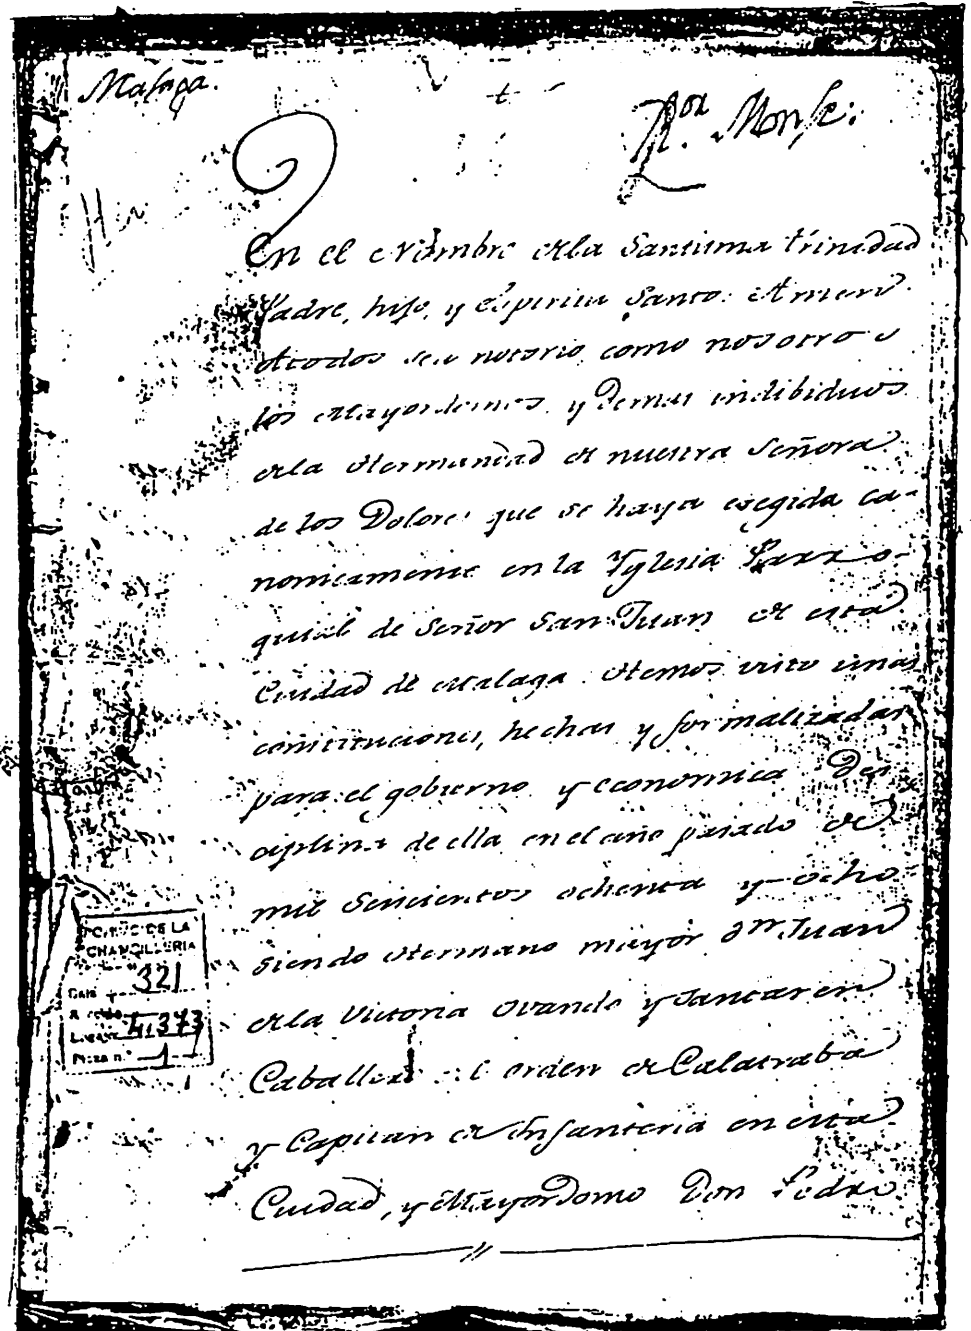 Malaga.
R.or Monse:
En el Nombre de la Santisima trinidad
Padre, hijo, y espiritu Santo. Amen
Atodos sea notorio como nosotros
los Mayordomos y Demas indibiduos
de la Hermandad de nuestra Señora
de los Dolores que se haya eregida ca-
nonicamente en la Yglesia Parro-
quial de Señor San Juan de esta
Ciudad de Malaga. Hemos visto unas
constituciones, hechas y formalizadas
para el gobierno y economica Des
ciplina de ella en el año pasado de
mil Seiscientos ochenta y ocho
siendo Hermano mayor Dn. Juan
de la Victoria Ovando y Santaren
Caballero orden de Calatraba
y Capitan de Infanteria en esta
Ciudad, y Mayordomo Don Pedro
DE LA
CHANCILLERIA
321
4.373
Pieza n.º 1